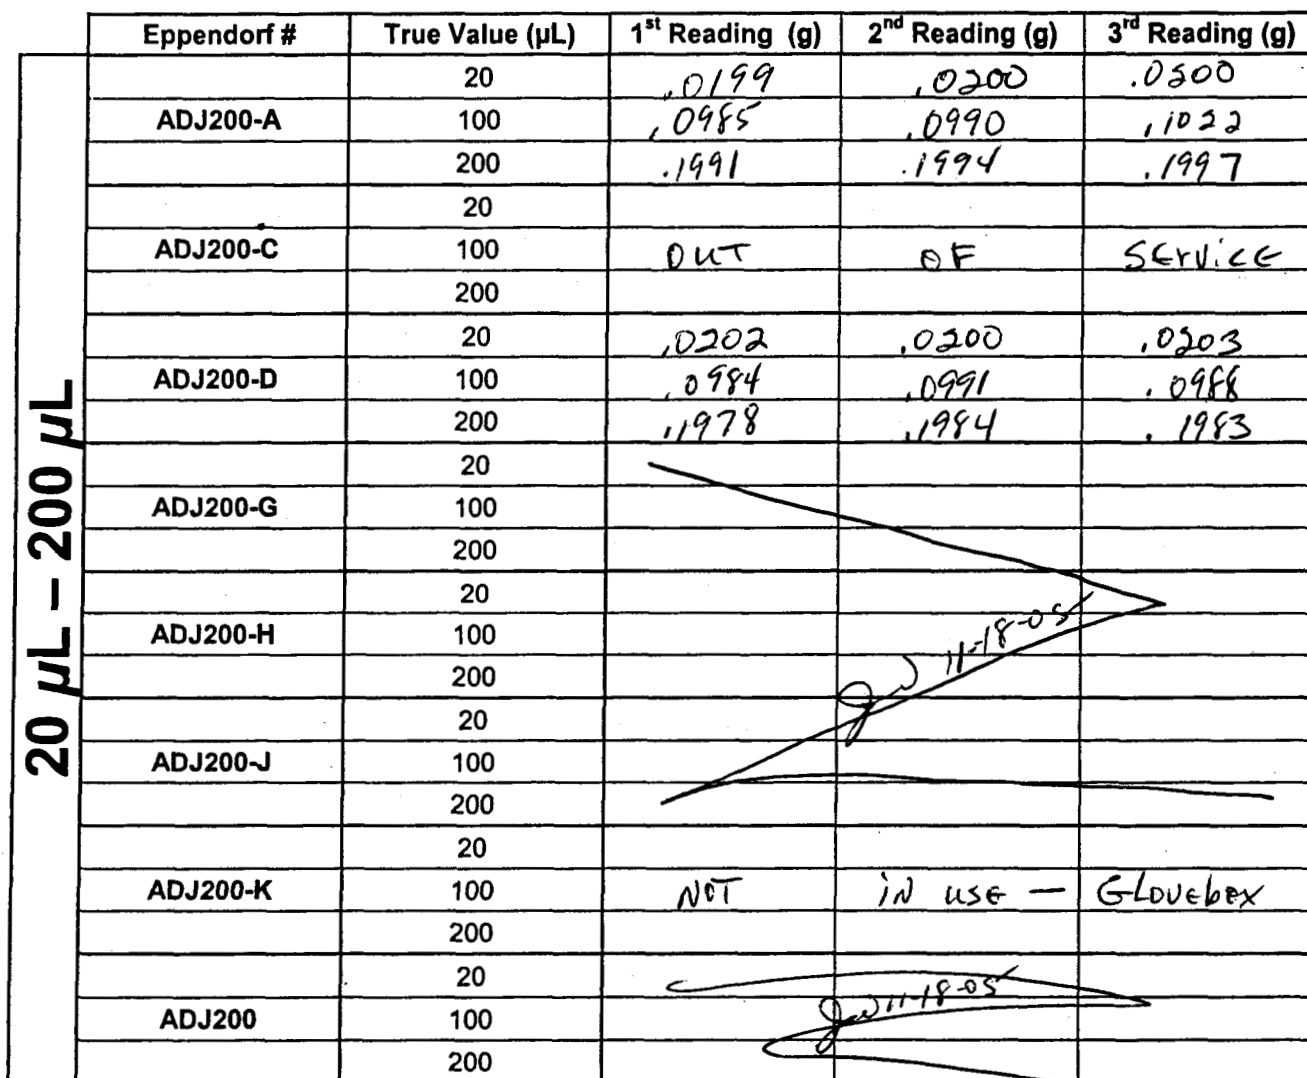 Eppendorf # True Value (µL) 1st Reading (g) 2nd Reading (g) 3rd Reading (g)
20 µL – 200 µL
20 .0199 .0200 .0200
ADJ200-A 100 .0985 .0990 .1022
200 .1991 .1994 .1997
20
ADJ200-C 100 OUT OF SErvicE
200
20 .0202 .0200 .0203
ADJ200-D 100 .0984 .0991 .0988
200 .1978 .1984 .1983
20
ADJ200-G 100
200
20
ADJ200-H 100 11-18-05
200
20
ADJ200-J 100
200
20
ADJ200-K 100 NOT iN USE — GLovebox
200
20
ADJ200 100 11-18-05
200